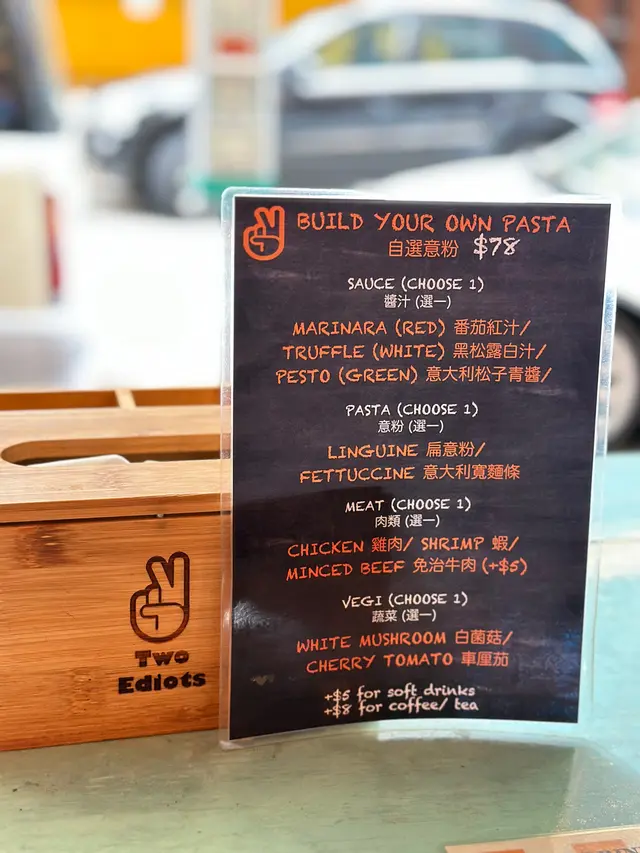 BUILD YOUR OWN PASTA
自選意粉 $78
SAUCE (CHOOSE 1)
醬汁 (選一)
MARINARA (RED) 番茄紅汁/
TRUFFLE (WHITE) 黑松露白汁/
PESTO (GREEN) 意大利松子青醬/
PASTA (CHOOSE 1)
意粉 (選一)
LINGUINE 扁意粉/
FETTUCCINE 意大利寬麵條
MEAT (CHOOSE 1)
肉類 (選一)
CHICKEN 雞肉/ SHRIMP 蝦/
MINCED BEEF 免治牛肉 (+$5)
VEGI (CHOOSE 1)
蔬菜 (選一)
WHITE MUSHROOM 白菌菇/
CHERRY TOMATO 車厘茄
+$5 for soft drinks
+$8 for coffee/ tea
Two
Ediots